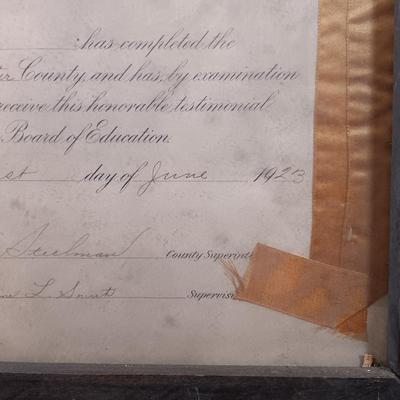 : has completed the
County, and has, by examination
receive this honorable testimonial
Board of Education.
st day of June 1923
Steelman County Superint
L. Smith Supervis